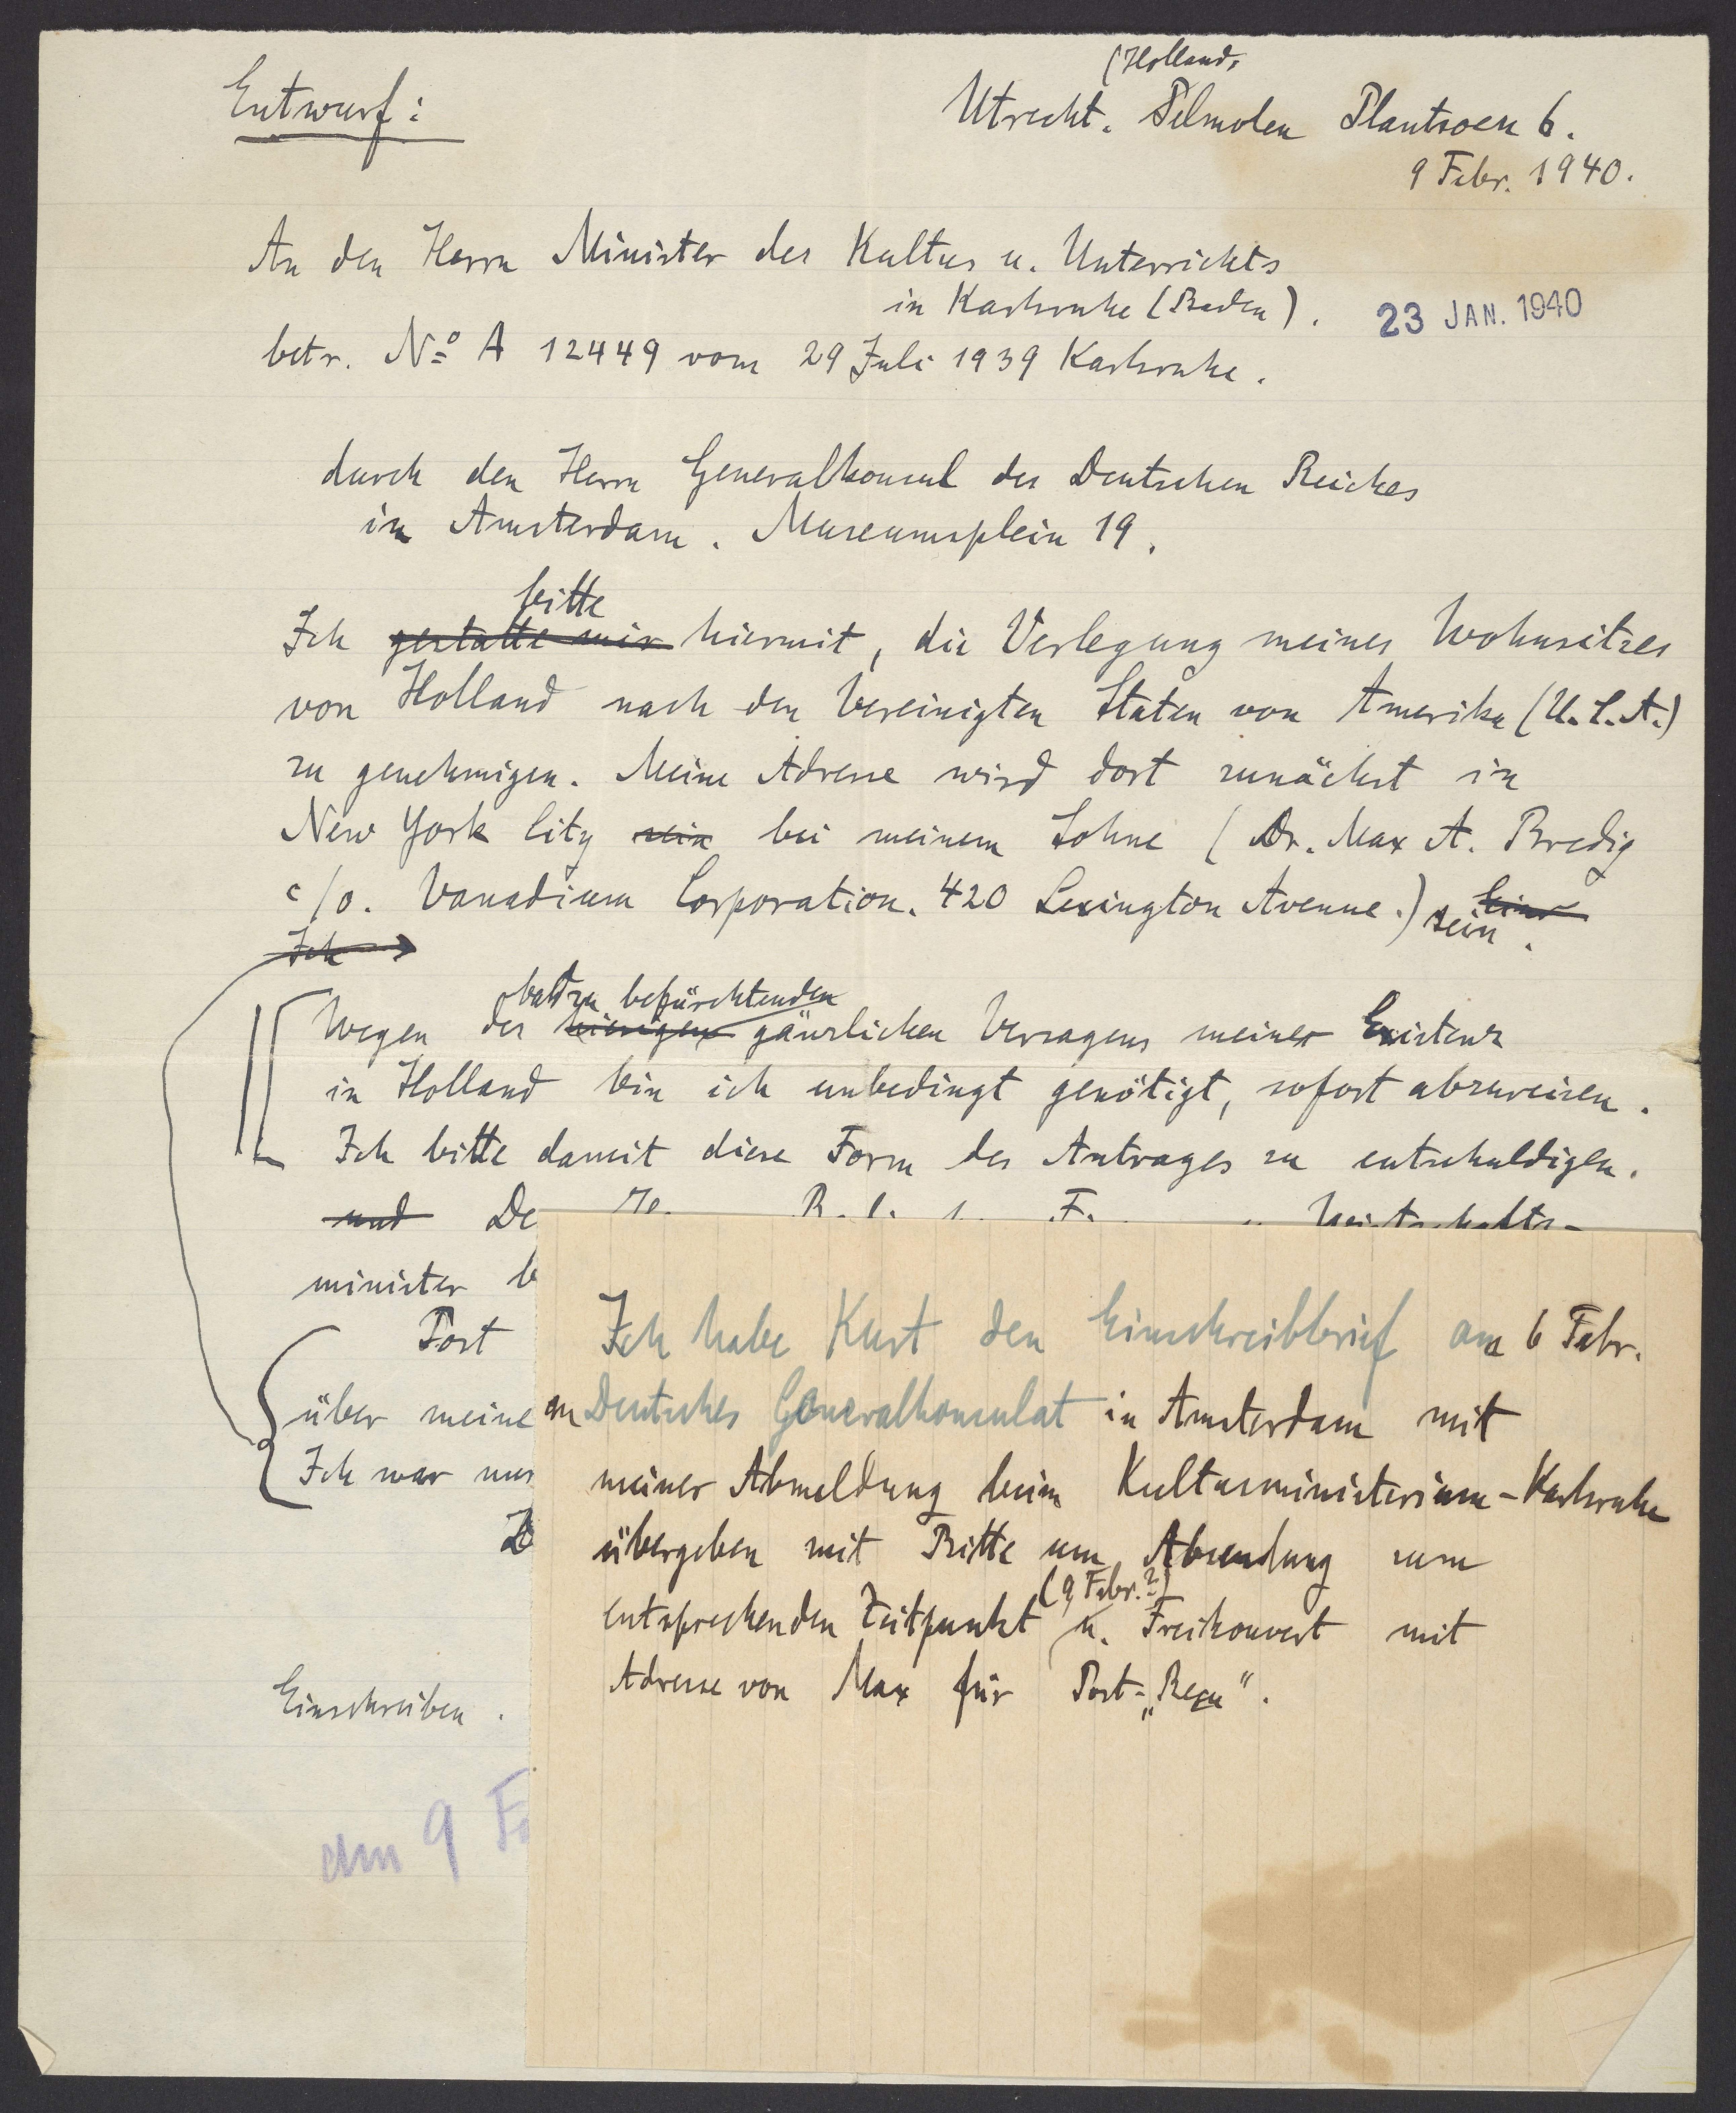 Entwurf:
(Holland)
Utrecht. Pelmolen Plantsoen 6.
9 Febr. 1940.
An den Herrn Minister des Kultus u. Unterrichts
in Karlsruhe (Baden).
23 JAN. 1940
betr. No A 12449 vom 29 Juli 1939 Karlsruhe.
durch den Herrn Generalkonsul des Deutschen Reiches
in Amsterdam. Museumsplein 19.
bitte
Ich gestatte mir hiermit, die Verlegung meines Wohnsitzes
von Holland nach den Vereinigten Staten von Amerika (U.S.A.)
zu genehmigen. Meine Adresse wird dort zunächst in
New York City sein bei meinem Sohne (Dr. Max A. Bredig
c/o. Vanadium Corporation. 420 Lexington Avenue.) sein.
Ich
bald zu befürchtenden
Wegen des hiesigen gänzlichen Versagens meiner Existenz
in Holland bin ich unbedingt genötigt, sofort abzureisen.
Ich bitte damit diese Form des Antrages zu entschuldigen.
und De Wirtschafts-
minister b
Post
über meine
Ich war nur
Einschreiben.
am 9 F
Ich habe Kurt den Einschreibbrief am 6 Febr.
an Deutsches Generalkonsulat in Amsterdam mit
meiner Abmeldung beim Kultusministerium-Karlsruhe
übergeben mit Bitte um Absendung zum
(9 Febr.?)
entsprechenden Zeitpunkt u. Freikouvert mit
Adresse von Max für Post-„Reçu".